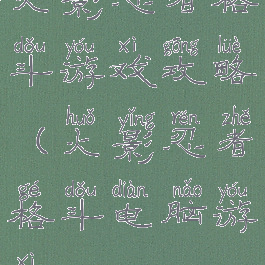 火影忍者格
dǒu yóu xì gōng luè
斗游戏攻略
huǒ yǐng rěn zhě
（火影忍者
gé dǒu diàn nǎo yóu
格斗电脑游
xì